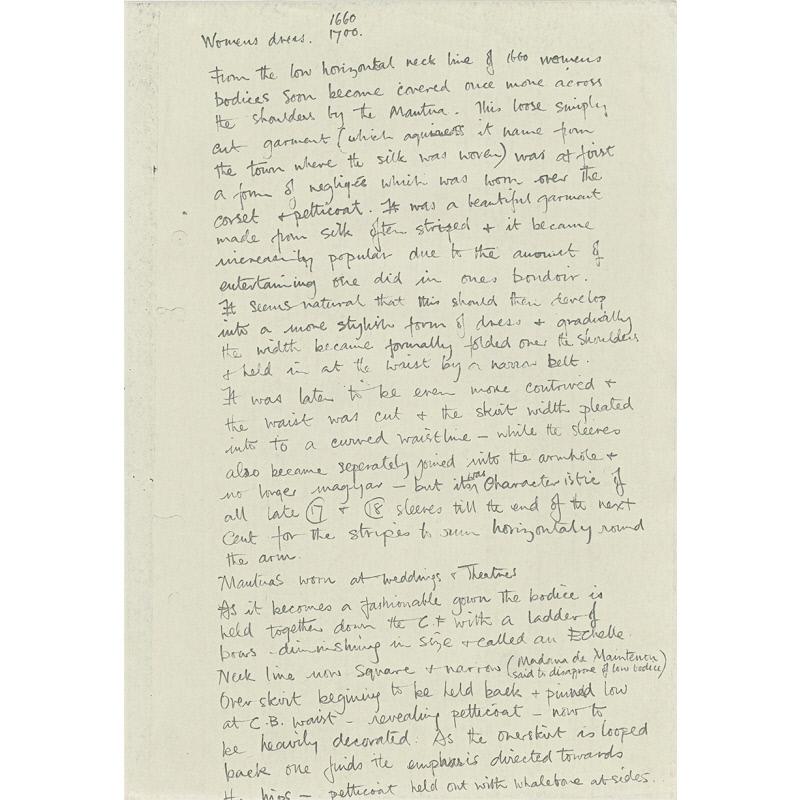 1660
Womens dress. 1700.
From the low horizontal neck line of 1660 womens
bodices soon become covered once more across
the shoulders by the Mantua. This loose simply
cut garment (which aquiress it name from
the town where the silk was woven) was at first
a form of negligée which was worn over the
corset & petticoat. It was a beautiful garment
made from silk often striped & it became
increasinly popular due to the amount of
entertaining one did in ones boudoir.
It seems natural that this should then develop
into a more stylish form of dress & gradually
the width became formally folded over the shoulders
& held in at the waist by a narrow belt.
It was later to be even more contrived &
the waist was cut & the skirt width pleated
into to a curved waistline – while the sleeves
also became seperately joined into the armhole &
no longer magyar – but it was characteristic of
all late 17 & 18 sleeves till the end of the next
cent for the stripes to run horizontaly round
the arm.
Mantuas worn at weddings & Theatres
As it becomes a fashionable gown the bodice is
held together down the C.F with a ladder of
bows diminishing in size & called an Echelle.
Neck line now square & narrow (Madame de Maintenon
said to disaprove of low bodice)
Overskirt begining to be held back & pinned low
at C.B. waist – revealing petticoat – now to
be heavily decorated. As the overskirt is looped
back one finds the emphasis directed towards
the hips – petticoat held out with whalebone at sides.